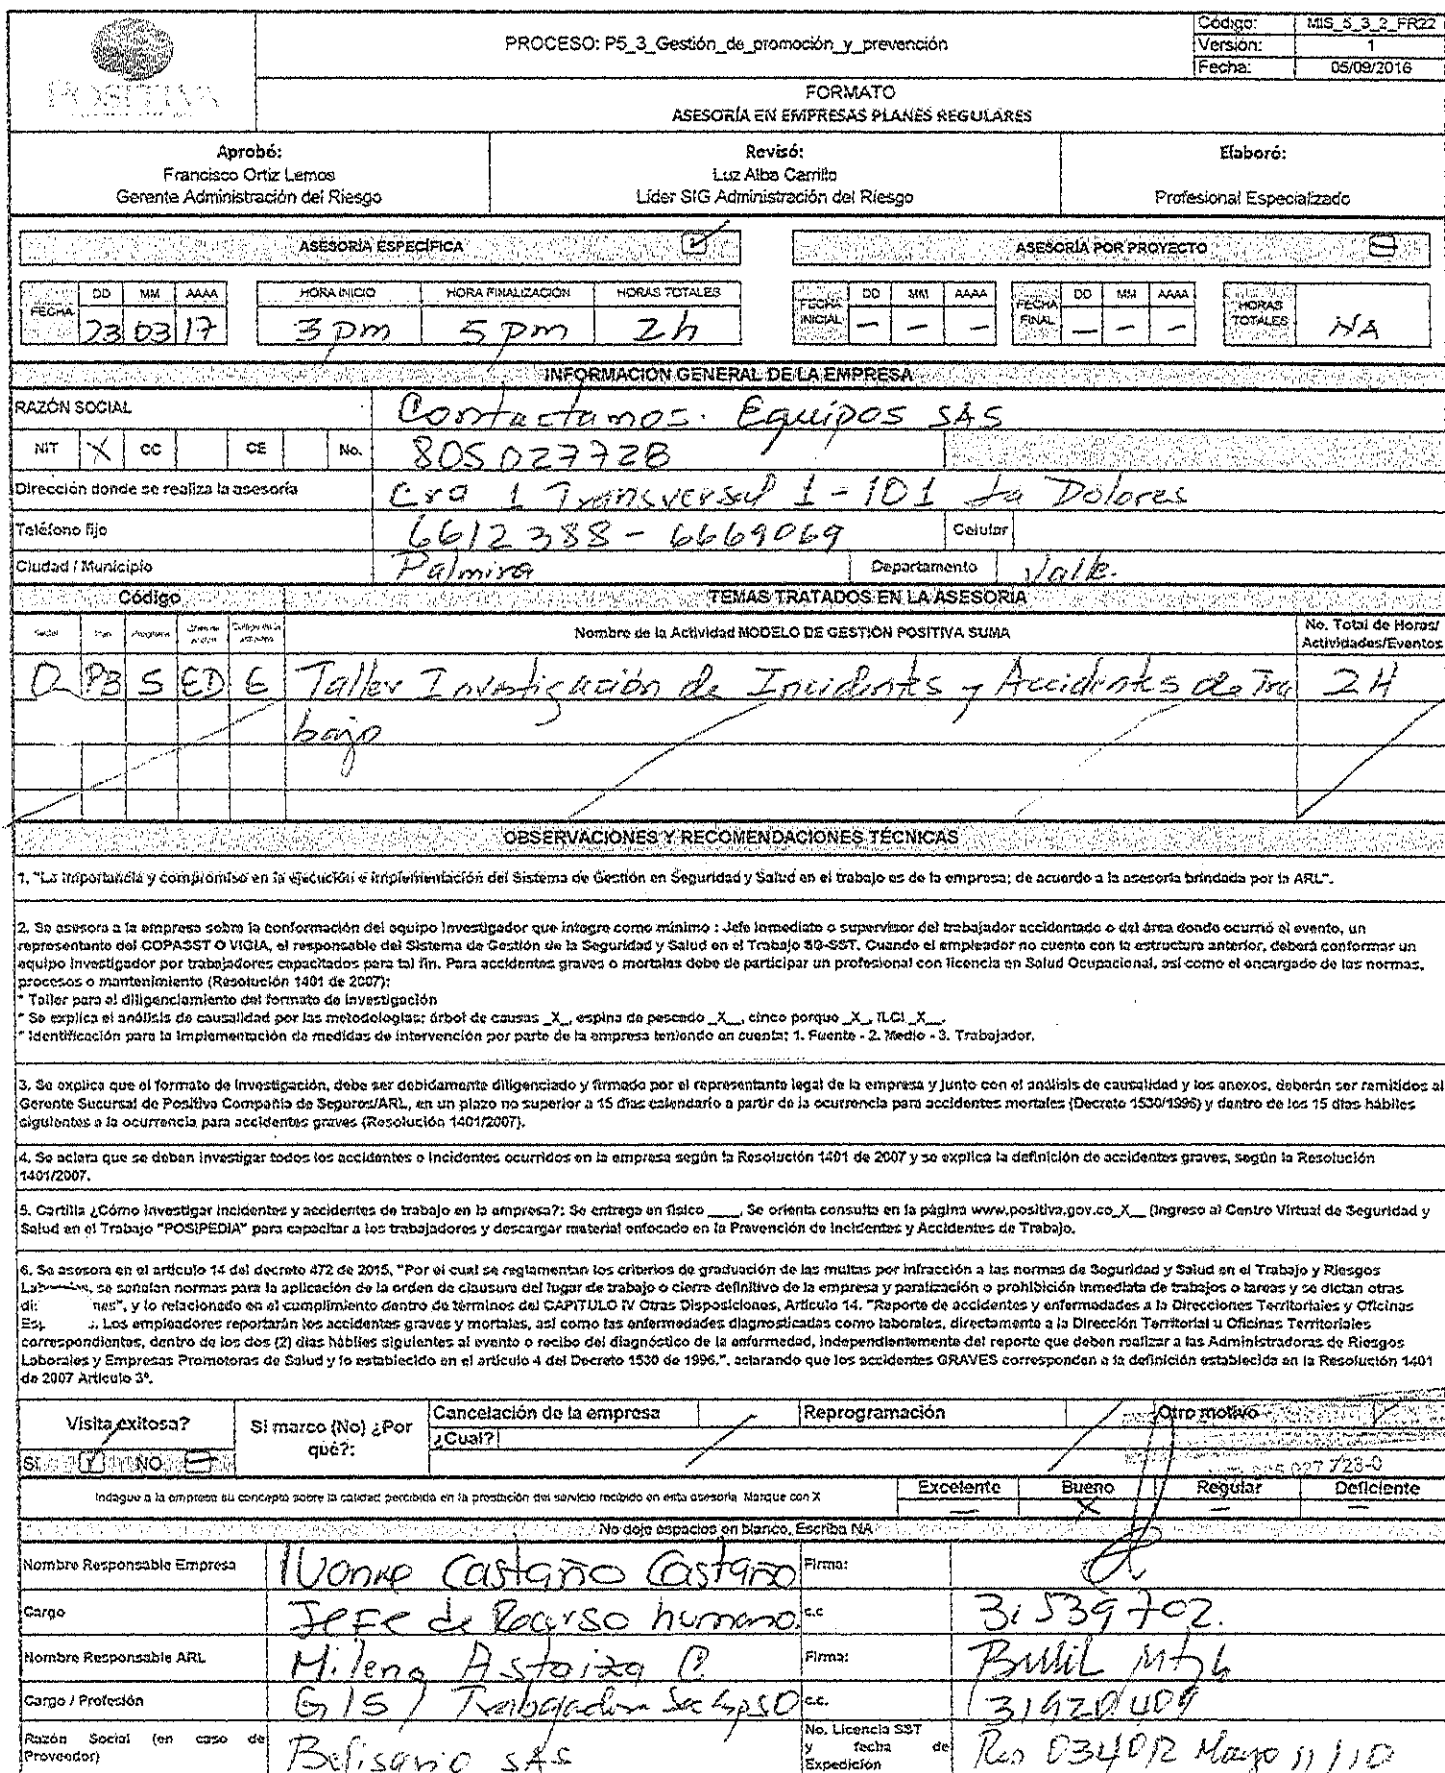 PROCESO: P5_3_Gestión_de_promoción_y_prevención
Código: MIS_5_3_2_FR22
Versión: 1
Fecha: 05/09/2016
POSITIVA
FORMATO
ASESORÍA EN EMPRESAS PLANES REGULARES
Aprobó:
Francisco Ortiz Lemos
Gerente Administración del Riesgo
Revisó:
Luz Alba Carrillo
Líder SIG Administración del Riesgo
Elaboró:
Profesional Especializado
ASESORÍA ESPECÍFICA
ASESORÍA POR PROYECTO
FECHA DD MM AAAA HORA INICIO HORA FINALIZACIÓN HORAS TOTALES
23 03 17 3 pm 5 pm 2 h
FECHA INICIAL DD MM AAAA FECHA FINAL DD MM AAAA HORAS TOTALES
- - - - - - NA
INFORMACION GENERAL DE LA EMPRESA
RAZÓN SOCIAL Contactamos. Equipos SAS
NIT X CC CE No. 805027728
Dirección donde se realiza la asesoría Cra 1 Transversal 1-101 La Dolores
Teléfono fijo 6612388 - 6669069 Celular
Ciudad / Municipio Palmira Departamento Valle.
Código TEMAS TRATADOS EN LA ASESORÍA
Nombre de la Actividad MODELO DE GESTIÓN POSITIVA SUMA No. Total de Horas/
Actividades/Eventos
P3 5 ED 6 Taller Investigación de Incidentes y Accidentes de Tra 2 H
bajo
OBSERVACIONES Y RECOMENDACIONES TÉCNICAS
1. "La importancia y compromiso en la ejecución e implementación del Sistema de Gestión en Seguridad y Salud en el trabajo es de la empresa; de acuerdo a la asesoría brindada por la ARL".
2. Se asesora a la empresa sobre la conformación del equipo investigador que integre como mínimo : Jefe inmediato o supervisor del trabajador accidentado o del área donde ocurrió el evento, un
representante del COPASST O VIGIA, el responsable del Sistema de Gestión de la Seguridad y Salud en el Trabajo SG-SST. Cuando el empleador no cuente con la estructura anterior, deberá conformar un
equipo investigador por trabajadores capacitados para tal fin. Para accidentes graves o mortales debe de participar un profesional con licencia en Salud Ocupacional, así como el encargado de las normas,
procesos o mantenimiento (Resolución 1401 de 2007):
* Taller para el diligenciamiento del formato de investigación
* Se explica el análisis de causalidad por las metodologías: árbol de causas _X_, espina de pescado _X_, cinco porque _X_, ILCI _X_.
* Identificación para la implementación de medidas de intervención por parte de la empresa teniendo en cuenta: 1. Fuente - 2. Medio - 3. Trabajador.
3. Se explica que el formato de investigación, debe ser debidamente diligenciado y firmado por el representante legal de la empresa y junto con el análisis de causalidad y los anexos, deberán ser remitidos al
Gerente Sucursal de Positiva Compañía de Seguros/ARL, en un plazo no superior a 15 días calendario a partir de la ocurrencia para accidentes mortales (Decreto 1530/1996) y dentro de los 15 días hábiles
siguientes a la ocurrencia para accidentes graves (Resolución 1401/2007).
4. Se aclara que se deben investigar todos los accidentes e incidentes ocurridos en la empresa según la Resolución 1401 de 2007 y se explica la definición de accidentes graves, según la Resolución
1401/2007.
5. Cartilla ¿Cómo investigar incidentes y accidentes de trabajo en la empresa?: Se entrega en físico ____, Se orienta consulta en la página www.positiva.gov.co_X__ (Ingreso al Centro Virtual de Seguridad y
Salud en el Trabajo "POSIPEDIA" para capacitar a los trabajadores y descargar material enfocado en la Prevención de Incidentes y Accidentes de Trabajo.
6. Se asesora en el artículo 14 del decreto 472 de 2015, "Por el cual se reglamentan los criterios de graduación de las multas por infracción a las normas de Seguridad y Salud en el Trabajo y Riesgos
se señalan normas para la aplicación de la orden de clausura del lugar de trabajo o cierre definitivo de la empresa y paralización o prohibición inmediata de trabajos o tareas y se dictan otras
nes", y lo relacionado en el cumplimiento dentro de términos del CAPITULO IV Otras Disposiciones, Artículo 14. "Reporte de accidentes y enfermedades a la Direcciones Territoriales y Oficinas
Los empleadores reportarán los accidentes graves y mortales, así como las enfermedades diagnosticadas como laborales, directamente a la Dirección Territorial u Oficinas Territoriales
correspondientes, dentro de los dos (2) días hábiles siguientes al evento o recibo del diagnóstico de la enfermedad, independientemente del reporte que deben realizar a las Administradoras de Riesgos
Laborales y Empresas Promotoras de Salud y lo establecido en el artículo 4 del Decreto 1530 de 1996.", aclarando que los accidentes GRAVES corresponden a la definición establecida en la Resolución 1401
de 2007 Artículo 3º.
Visita exitosa? Si marco (No) ¿Por qué?: Cancelación de la empresa Reprogramación Otro motivo
¿Cual?
SI NO
027 728-0
Indague a la empresa su concepto sobre la calidad percibida en la prestación del servicio recibido en esta asesoría Marque con X Excelente Bueno Regular Deficiente
- X - -
No deje espacios en blanco, Escriba NA
Nombre Responsable Empresa Ivonne Castaño Castaño Firma:
Cargo Jefe de Recurso humano. c.c 31539702.
Nombre Responsable ARL Milena Astaiza C. Firma:
Cargo / Profesión GIS / Trabajadora c.c. 31920409
Razón Social (en caso de Proveedor) Belisario SAS No. Licencia SST y fecha de Expedición Res Mayo 11/10